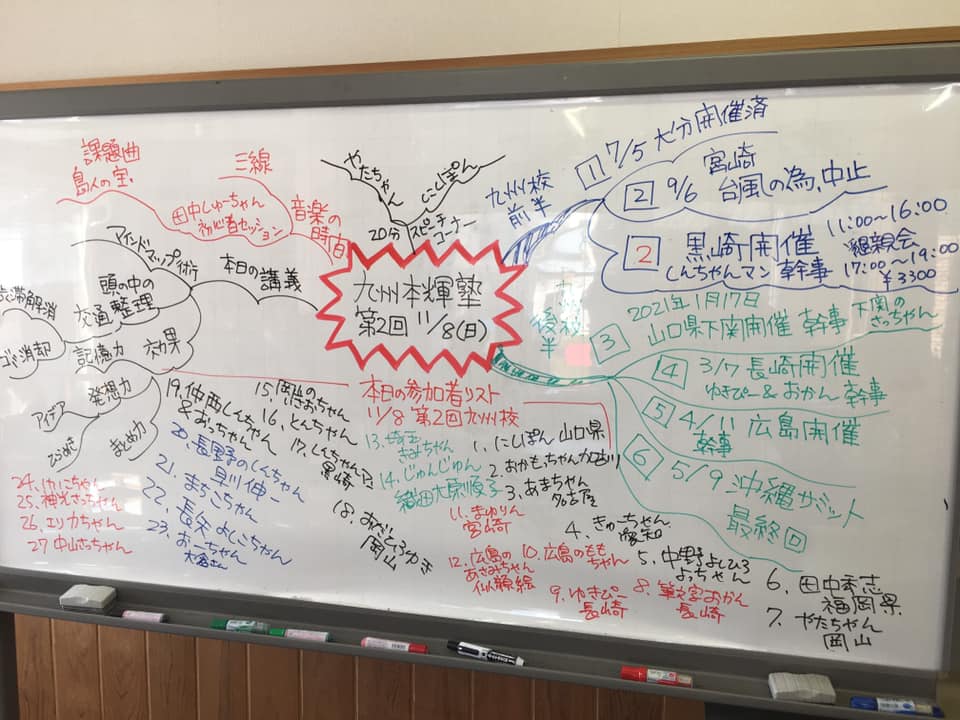 九州本輝塾
第2回 11/8(日)
課題曲
島人の宝
三線
田中しゅーちゃん
初心者セッション
音楽の
時間
やたちゃん
にしぽん
20分
スピーチ
コーナー
九州校
前半
1 7/5 大分開催済
2 9/6 宮崎
台風の為、中止
2 黒崎開催
しんちゃんマン 幹事
11:00～16:00
懇親会
17:00～19:00
¥3300
後半
2021年1月17日
3 山口県下関開催 幹事 下関の
さっちゃん
4 3/7 長崎開催
ゆきぴー&おかん 幹事
5 4/11 広島開催
幹事
6 5/9 沖縄サミット
最終回
本日の講義
マインドマップ術
頭の中の
交通整理
渋滞解消
ゴミ消却
記憶力
効果
発想力
アイデア
ひらめき
まとめ力
本日の参加者リスト
11/8 第2回九州校
1. にしぽん 山口県
2. おかもっちゃん 加古川
3. あまちゃん
名古屋
4. きゅーちゃん
愛知
5. 中野よしひろ
よっちゃん
6. 田中秀志
福岡県
7. やたちゃん
岡山
8. 筆文字おかん
長崎
9. ゆきぴー
長崎
10. 広島のもも
ちゃん
11. まゆりん
宮崎
12. 広島の
あさみちゃん
似顔絵
13. 埼玉
きよみちゃん
14. じゅんじゅん
織田大原順子
15. 岡山の
16. とんちゃん
17. しんちゃんマン
黒崎
18. おだひろゆき
岡山
19. 仲西しんちゃん
&おっちゃん
20. 長野のしんちゃん
早川伸一
21. まちこちゃん
22. 長矢よしこちゃん
23. おーちゃん
大倉さん
24. けいこちゃん
25. 神光さっちゃん
26. エリカちゃん
27 中山さっちゃん